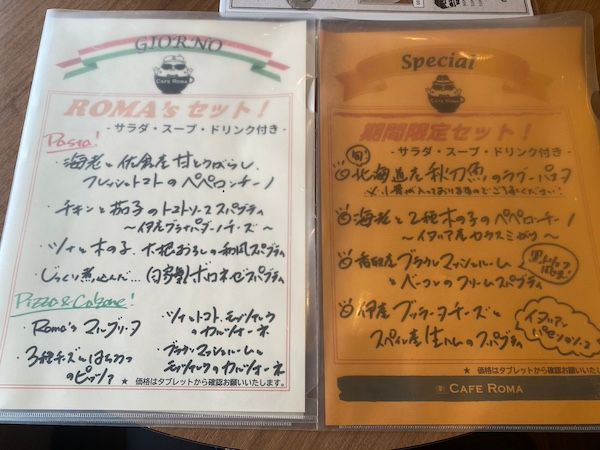 GIORNO
Cafe Roma
ROMA'sセット!
-サラダ・スープ・ドリンク付き-
Pasta!
・海老と
フレッシュトマトのペペロンチーノ
・チキンと茄子のトマトソーススパゲティ
・ツナと木の子、大根おろしの和風スパゲティ
・じっくり煮込んだ…ボロネーゼスパゲティ
Pizza & Calzone!
・Roma's マルゲリータ
・3種チーズとはちみつ
のピッツァ
・ツナとトマト、モッツァレラ
のカルツォーネ
・ブラウンマッシュルームと
モッツァレラのカルツォーネ
★ 価格はタブレットから確認お願いいたします。
Special
Cafe Roma
期間限定セット!
-サラダ・スープ・ドリンク付き-
旬
北海道産秋刀魚のラグー・
海老と2種木の子のペペロンチーノ
〜イタリア産カラスミがけ〜
香川産ブラウンマッシュルーム
とベーコンのクリームスパゲティ
伊産ブッラータチーズと
スペイン産生ハムのスパゲティ
イタリアン
パセリのソース
★ 価格はタブレットから確認お願いいたします
CAFE ROMA